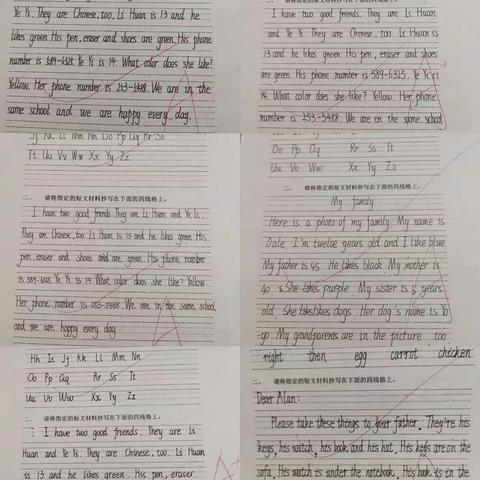 Ye Ys. They are Chinese, too. Li Huan is 13 and he
likes green. His pen, eraser and shoes are green. His phone
number is 589-6325. Ye Ys is 14. What color does she like?
Yellow. Her phone number is 253-5488. We are in the
same school and we are happy every day.
I have two good friends. They are Li Huan
and Ye Ys. They are Chinese, too. Li Huan is
13 and he likes green. His pen, eraser and shoes
are green. His phone number is 589-6325. Ye Ys is
14. What color does she like? Yellow. Her phone
number is 253-5488. We are in the same school
Jj Kk Ll Mm Nn Oo Pp Qq Rr Ss
Tt Uu Vv Ww Xx Yy Zz
二、 请将指定的短文材料抄写在下面的四线格上。
I have two good friends. They are Li Huan and Ye Ys.
They are Chinese, too. Li Huan is 13 and he likes green. His
pen, eraser and shoes and are green. His phone number
is 589-6325. Ye Ys is 14. What color does she like? Yellow.
Her phone number is 253-5488. We are in the same school
and we are happy every day
Oo Pp Qq Rr Ss Tt
Uu Vv Ww Xx Yy Zz
二、 请将指定的短文材料抄写在下面的四线格上。
My family
Here is a photo of my family. My name is
Dale. I'm twelve years old and I like blue.
My father is 45. He likes black. My mother is
40. She likes purple. My sister is 5 years
old. She likes dogs. Her dog's name is Yo
yo. My grandparents are in the picture, too.
right then egg carrot chicken
Hh Ii Jj Kk Ll Mm Nn
Oo Pp Qq Rr Ss Tt
Uu Vv Ww Xx Yy Zz
二、 请将指定的短文材料抄写在下面的四线格上。
I have two good friends. They are Li
Huan and Ye Ys. They are Chinese, too. Li Huan
is 13 and he likes green. His pen, eraser
二、 请将指定的短文材料抄写在下面的四线格上。
Dear Alan:
Please take these things to your father. They're his
keys, his watch, his book and his hat. His keys are on the
sofa. His watch is under the notebook. His book is in the